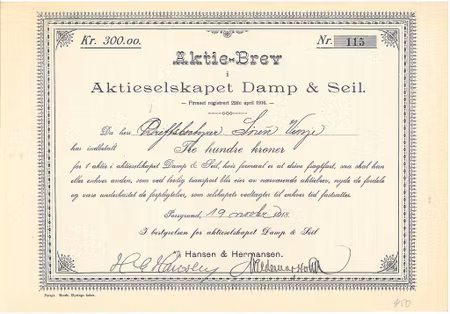 Kr. 300.00. Nr. 115
Aktie-Brev
i
Aktieselskapet Damp & Seil.
— Firmaet registrert 22de april 1916. —
Da herr Søren
har indbetalt Tre hundre kroner
for 1 aktie i aktieselskapet Damp & Seil, hvis formaal er at drive fragtfart, saa skal han
eller enhver anden, som ved lovlig transport blir eier av nærværende aktiebrev, nyde de fordele
og være underkastet de forpligtelser, som selskapets vedtægter til enhver tid fastsætter.
Porsgrund, 19
I bestyrelsen for aktieselskapet Damp & Seil
Hansen & Hermansen.
450